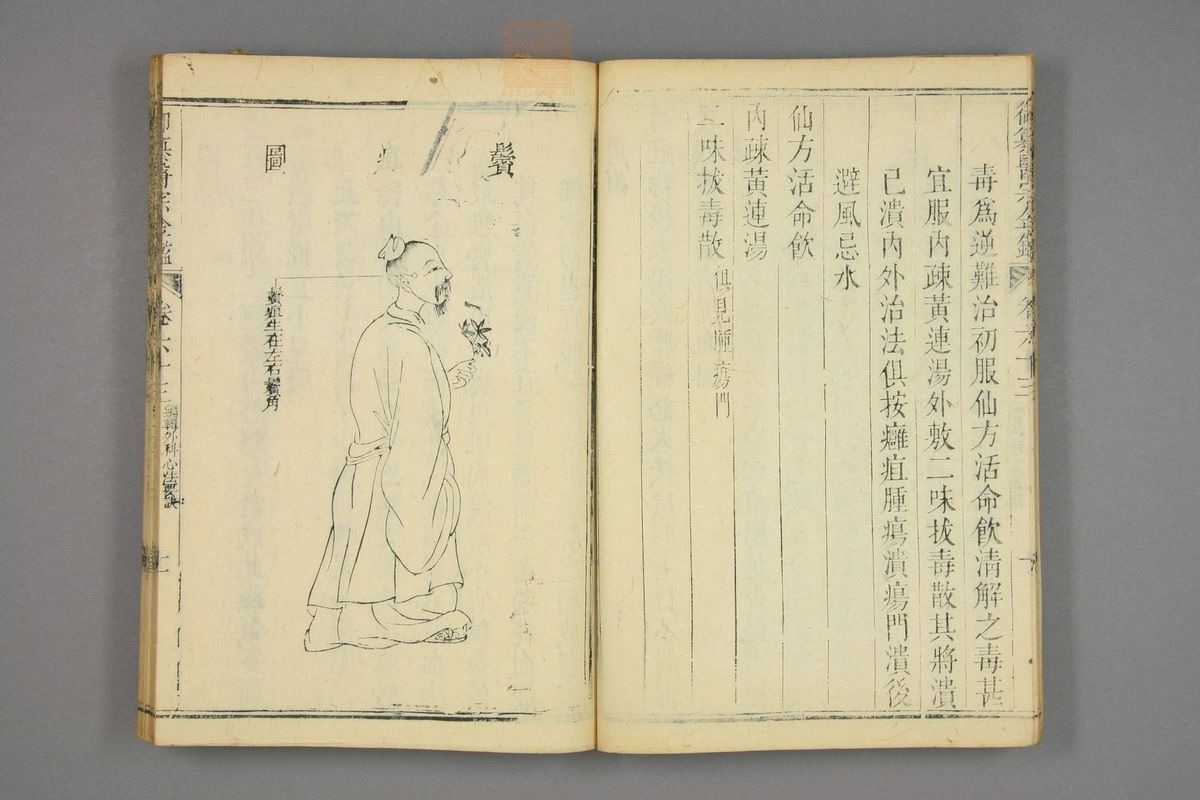 毒為逆難治初服仙方活命飲清解之毒甚
宜服內疎黃連湯外敷二味拔毒散其將潰
已潰內外治法俱按癰疽腫瘍潰瘍門潰後
避風忌水
仙方活命飲
內疎黃連湯
二味拔毒散 俱見腫瘍門
鬢
圖
鬢疽生在左右鬢角
御纂醫宗金鑑
卷六十三
編輯外科心法要訣